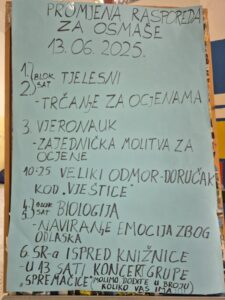 PROMJENA RASPOREDA
ZA OSMAŠE
13.06.2025.
1.) BLOK TJELESNI
2.) SAT
- TRČANJE ZA OCJENAMA
3. VJERONAUK
- ZAJEDNIČKA MOLITVA ZA
OCJENE
10:25 VELIKI ODMOR-DORUČAK
KOD „VJEŠTICE"
4.) BLOK BIOLOGIJA
5.) SAT
- NAVIRANJE EMOCIJA ZBOG
ODLASKA
6. SR-a ISPRED KNJIŽNICE
- U 13 SATI KONCERT GRUPE
„SPREMAČICE" (MOLIMO DOĐITE U BROJU
KOLIKO VAS IMA)